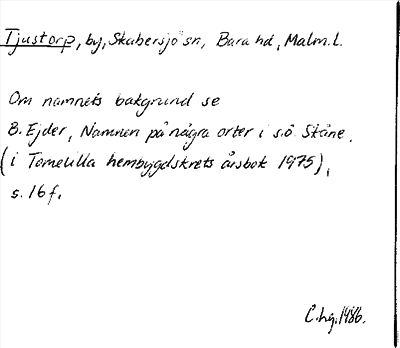 Tjustorp, by, Skabersjö sn, Bara hd, Malm. l.
Om namnets bakgrund se
B. Ejder, Namnen på några orter i s.ö. Skåne.
(i Tomelilla hembygdskrets årsbok 1975),
s. 16 f.
C. hg. 1986.